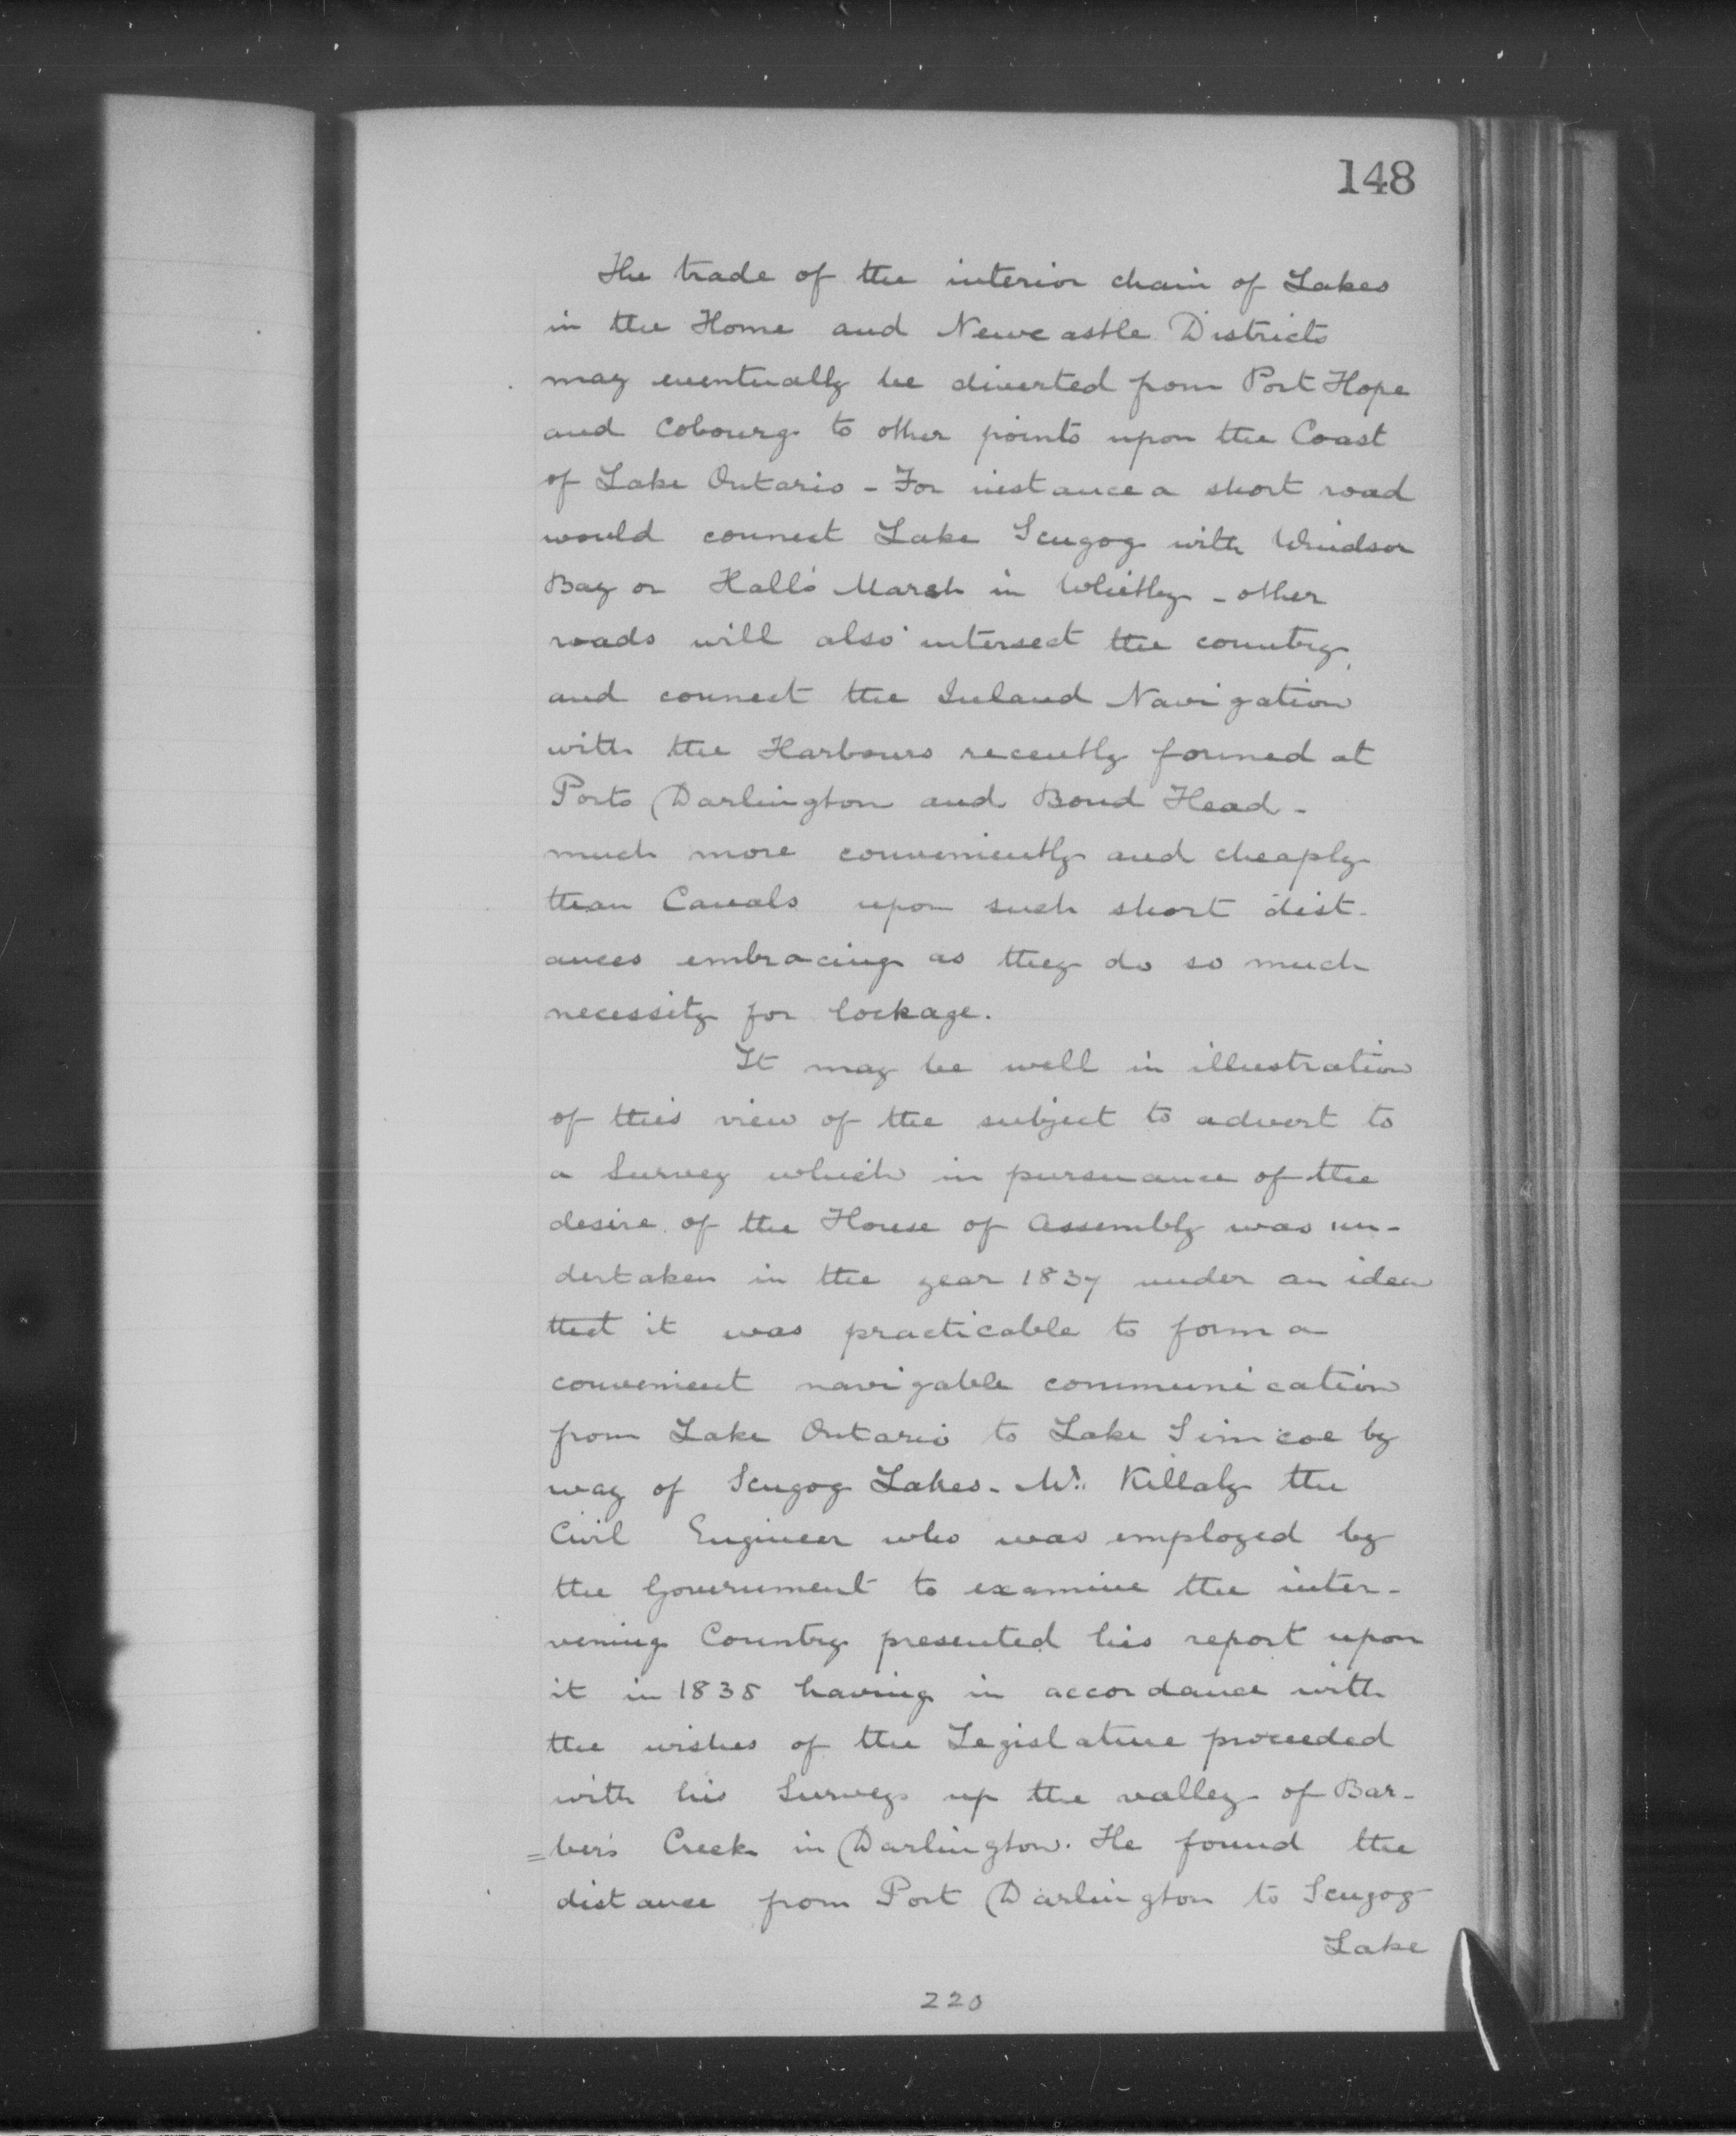 148
The trade of the interior chain of Lakes
in the Home and Newcastle Districts
may eventually be diverted from Port Hope
and Cobourg to other points upon the Coast
of Lake Ontario - For instance a short road
would connect Lake Scugog with Windsor
Bay or Hall's Marsh in Whitby - other
roads will also intersect the country,
and connect the Inland Navigation
with the Harbours recently formed at
Ports Darlington and Bond Head -
much more conveniently and cheaply
than Canals upon such short dist-
ances embracing as they do so much
necessity for lockage.
It may be well in illustration
of this view of the subject to advert to
a Survey which in pursuance of the
desire of the House of Assembly was un-
dertaken in the year 1837 under an idea
that it was practicable to form a
convenient navigable communication
from Lake Ontario to Lake Simcoe by
way of Scugog Lakes. Mr. Killaly the
Civil Engineer who was employed by
the Government to examine the inter-
vening Country presented his report upon
it in 1838 having in accordance with
the wishes of the Legislature proceeded
with his Survey up the valley of Bar-
=ber's Creek in Darlington. He found the
distance from Port Darlington to Scugog
Lake
220